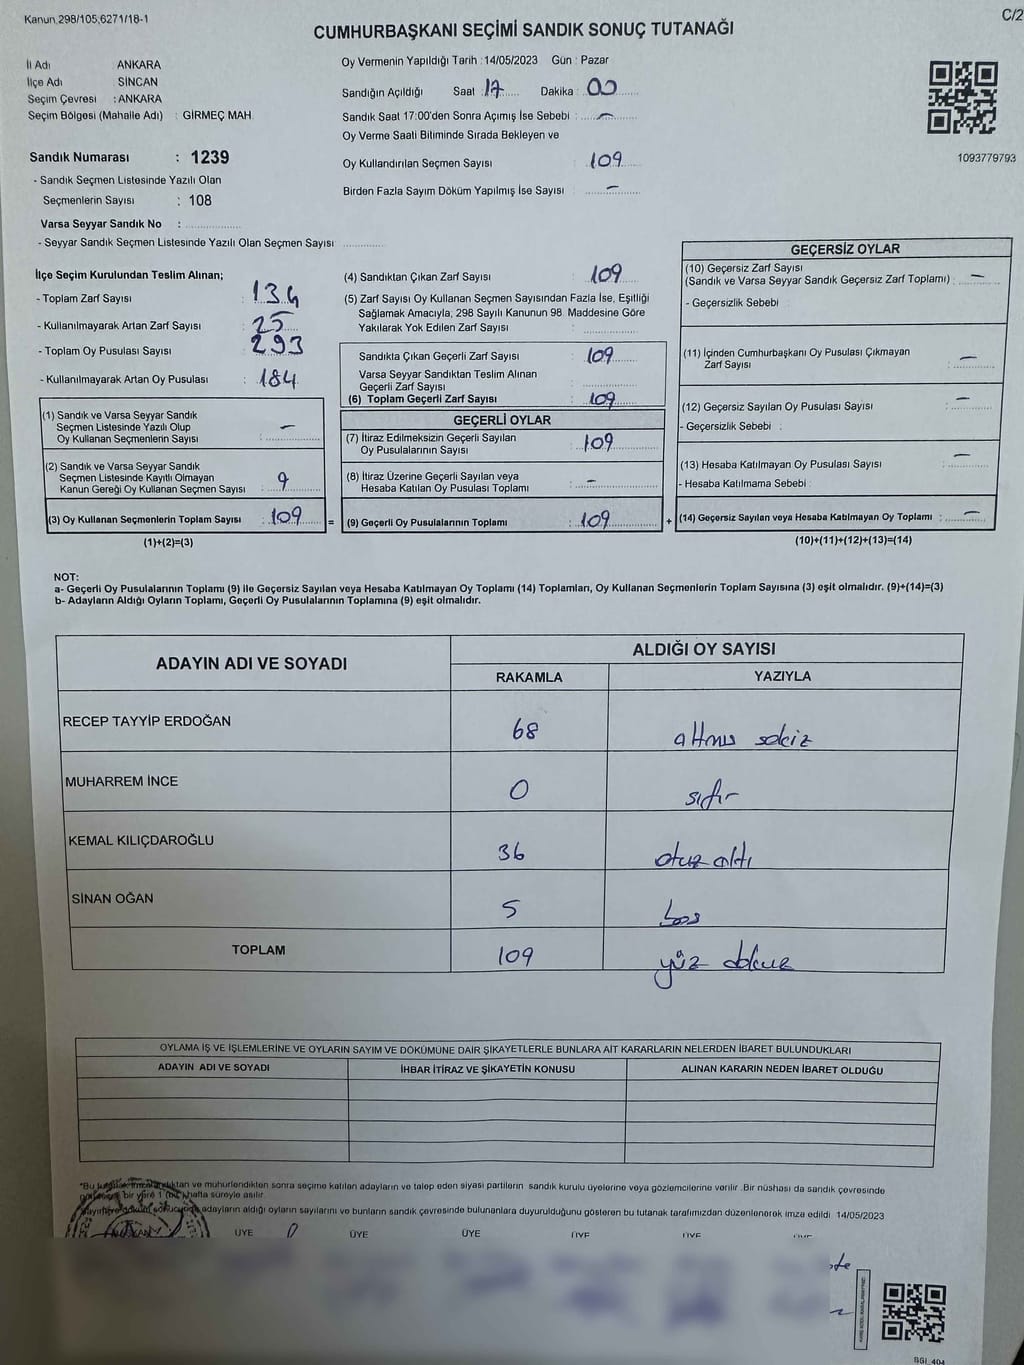 Kanun 298/105,6271/18-1
C/2
CUMHURBAŞKANI SEÇİMİ SANDIK SONUÇ TUTANAĞI
İl Adı ANKARA
İlçe Adı SİNCAN
Seçim Çevresi : ANKARA
Seçim Bölgesi (Mahalle Adı) : GİRMEÇ MAH.
Oy Vermenin Yapıldığı Tarih : 14/05/2023 Gün : Pazar
Sandığın Açıldığı Saat : 17 Dakika : 00
Sandık Saat 17:00'den Sonra Açımış İse Sebebi : –
Oy Verme Saati Bitiminde Sırada Bekleyen ve
Oy Kullandırılan Seçmen Sayısı 109
Birden Fazla Sayım Döküm Yapılmış İse Sayısı : –
1093779793
Sandık Numarası : 1239
- Sandık Seçmen Listesinde Yazılı Olan
Seçmenlerin Sayısı : 108
Varsa Seyyar Sandık No :
- Seyyar Sandık Seçmen Listesinde Yazılı Olan Seçmen Sayısı
İlçe Seçim Kurulundan Teslim Alınan;
- Toplam Zarf Sayısı : 134
- Kullanılmayarak Artan Zarf Sayısı : 25
- Toplam Oy Pusulası Sayısı : 293
- Kullanılmayarak Artan Oy Pusulası : 184
(1) Sandık ve Varsa Seyyar Sandık
Seçmen Listesinde Yazılı Olup
Oy Kullanan Seçmenlerin Sayısı : –
(2) Sandık ve Varsa Seyyar Sandık
Seçmen Listesinde Kayıtlı Olmayan
Kanun Gereği Oy Kullanan Seçmen Sayısı : 9
(3) Oy Kullanan Seçmenlerin Toplam Sayısı : 109 =
(1)+(2)=(3)
(4) Sandıktan Çıkan Zarf Sayısı : 109
(5) Zarf Sayısı Oy Kullanan Seçmen Sayısından Fazla İse, Eşitliği
Sağlamak Amacıyla, 298 Sayılı Kanunun 98. Maddesine Göre
Yakılarak Yok Edilen Zarf Sayısı :
Sandıkta Çıkan Geçerli Zarf Sayısı : 109
Varsa Seyyar Sandıktan Teslim Alınan
Geçerli Zarf Sayısı
(6) Toplam Geçerli Zarf Sayısı : 109
GEÇERLİ OYLAR
(7) İtiraz Edilmeksizin Geçerli Sayılan
Oy Pusulalarının Sayısı : 109
(8) İtiraz Üzerine Geçerli Sayılan veya
Hesaba Katılan Oy Pusulası Toplamı : –
(9) Geçerli Oy Pusulalarının Toplamı : 109 +
GEÇERSİZ OYLAR
(10) Geçersiz Zarf Sayısı
(Sandık ve Varsa Seyyar Sandık Geçersiz Zarf Toplamı) : –
- Geçersizlik Sebebi :
(11) İçinden Cumhurbaşkanı Oy Pusulası Çıkmayan
Zarf Sayısı : –
(12) Geçersiz Sayılan Oy Pusulası Sayısı : –
- Geçersizlik Sebebi :
(13) Hesaba Katılmayan Oy Pusulası Sayısı : –
- Hesaba Katılmama Sebebi :
(14) Geçersiz Sayılan veya Hesaba Katılmayan Oy Toplamı : –
(10)+(11)+(12)+(13)=(14)
NOT:
a- Geçerli Oy Pusulalarının Toplamı (9) ile Geçersiz Sayılan veya Hesaba Katılmayan Oy Toplamı (14) Toplamları, Oy Kullanan Seçmenlerin Toplam Sayısına (3) eşit olmalıdır. (9)+(14)=(3)
b- Adayların Aldığı Oyların Toplamı, Geçerli Oy Pusulalarının Toplamına (9) eşit olmalıdır.
ADAYIN ADI VE SOYADI
ALDIĞI OY SAYISI
RAKAMLA YAZIYLA
RECEP TAYYİP ERDOĞAN 68 altmış sekiz
MUHARREM İNCE 0 sıfır
KEMAL KILIÇDAROĞLU 36 otuz altı
SİNAN OĞAN 5 beş
TOPLAM 109 yüz dokuz
OYLAMA İŞ VE İŞLEMLERİNE VE OYLARIN SAYIM VE DÖKÜMÜNE DAİR ŞİKAYETLERLE BUNLARA AİT KARARLARIN NELERDEN İBARET BULUNDUKLARI
ADAYIN ADI VE SOYADI İHBAR İTİRAZ VE ŞİKAYETİN KONUSU ALINAN KARARIN NEDEN İBARET OLDUĞU
*Bu tutanak imzalandıktan ve mühürlendikten sonra seçime katılan adayların ve talep eden siyasi partilerin sandık kurulu üyelerine veya gözlemcilerine verilir. Bir nüshası da sandık çevresinde
bir yere 1 (bir) hafta süreyle asılır.
adayların aldığı oyların sayılarını ve bunların sandık çevresinde bulunanlara duyurulduğunu gösteren bu tutanak tarafımızdan düzenlenerek imza edildi. 14/05/2023
ÜYE ÜYE ÜYE ÜYE ÜYE